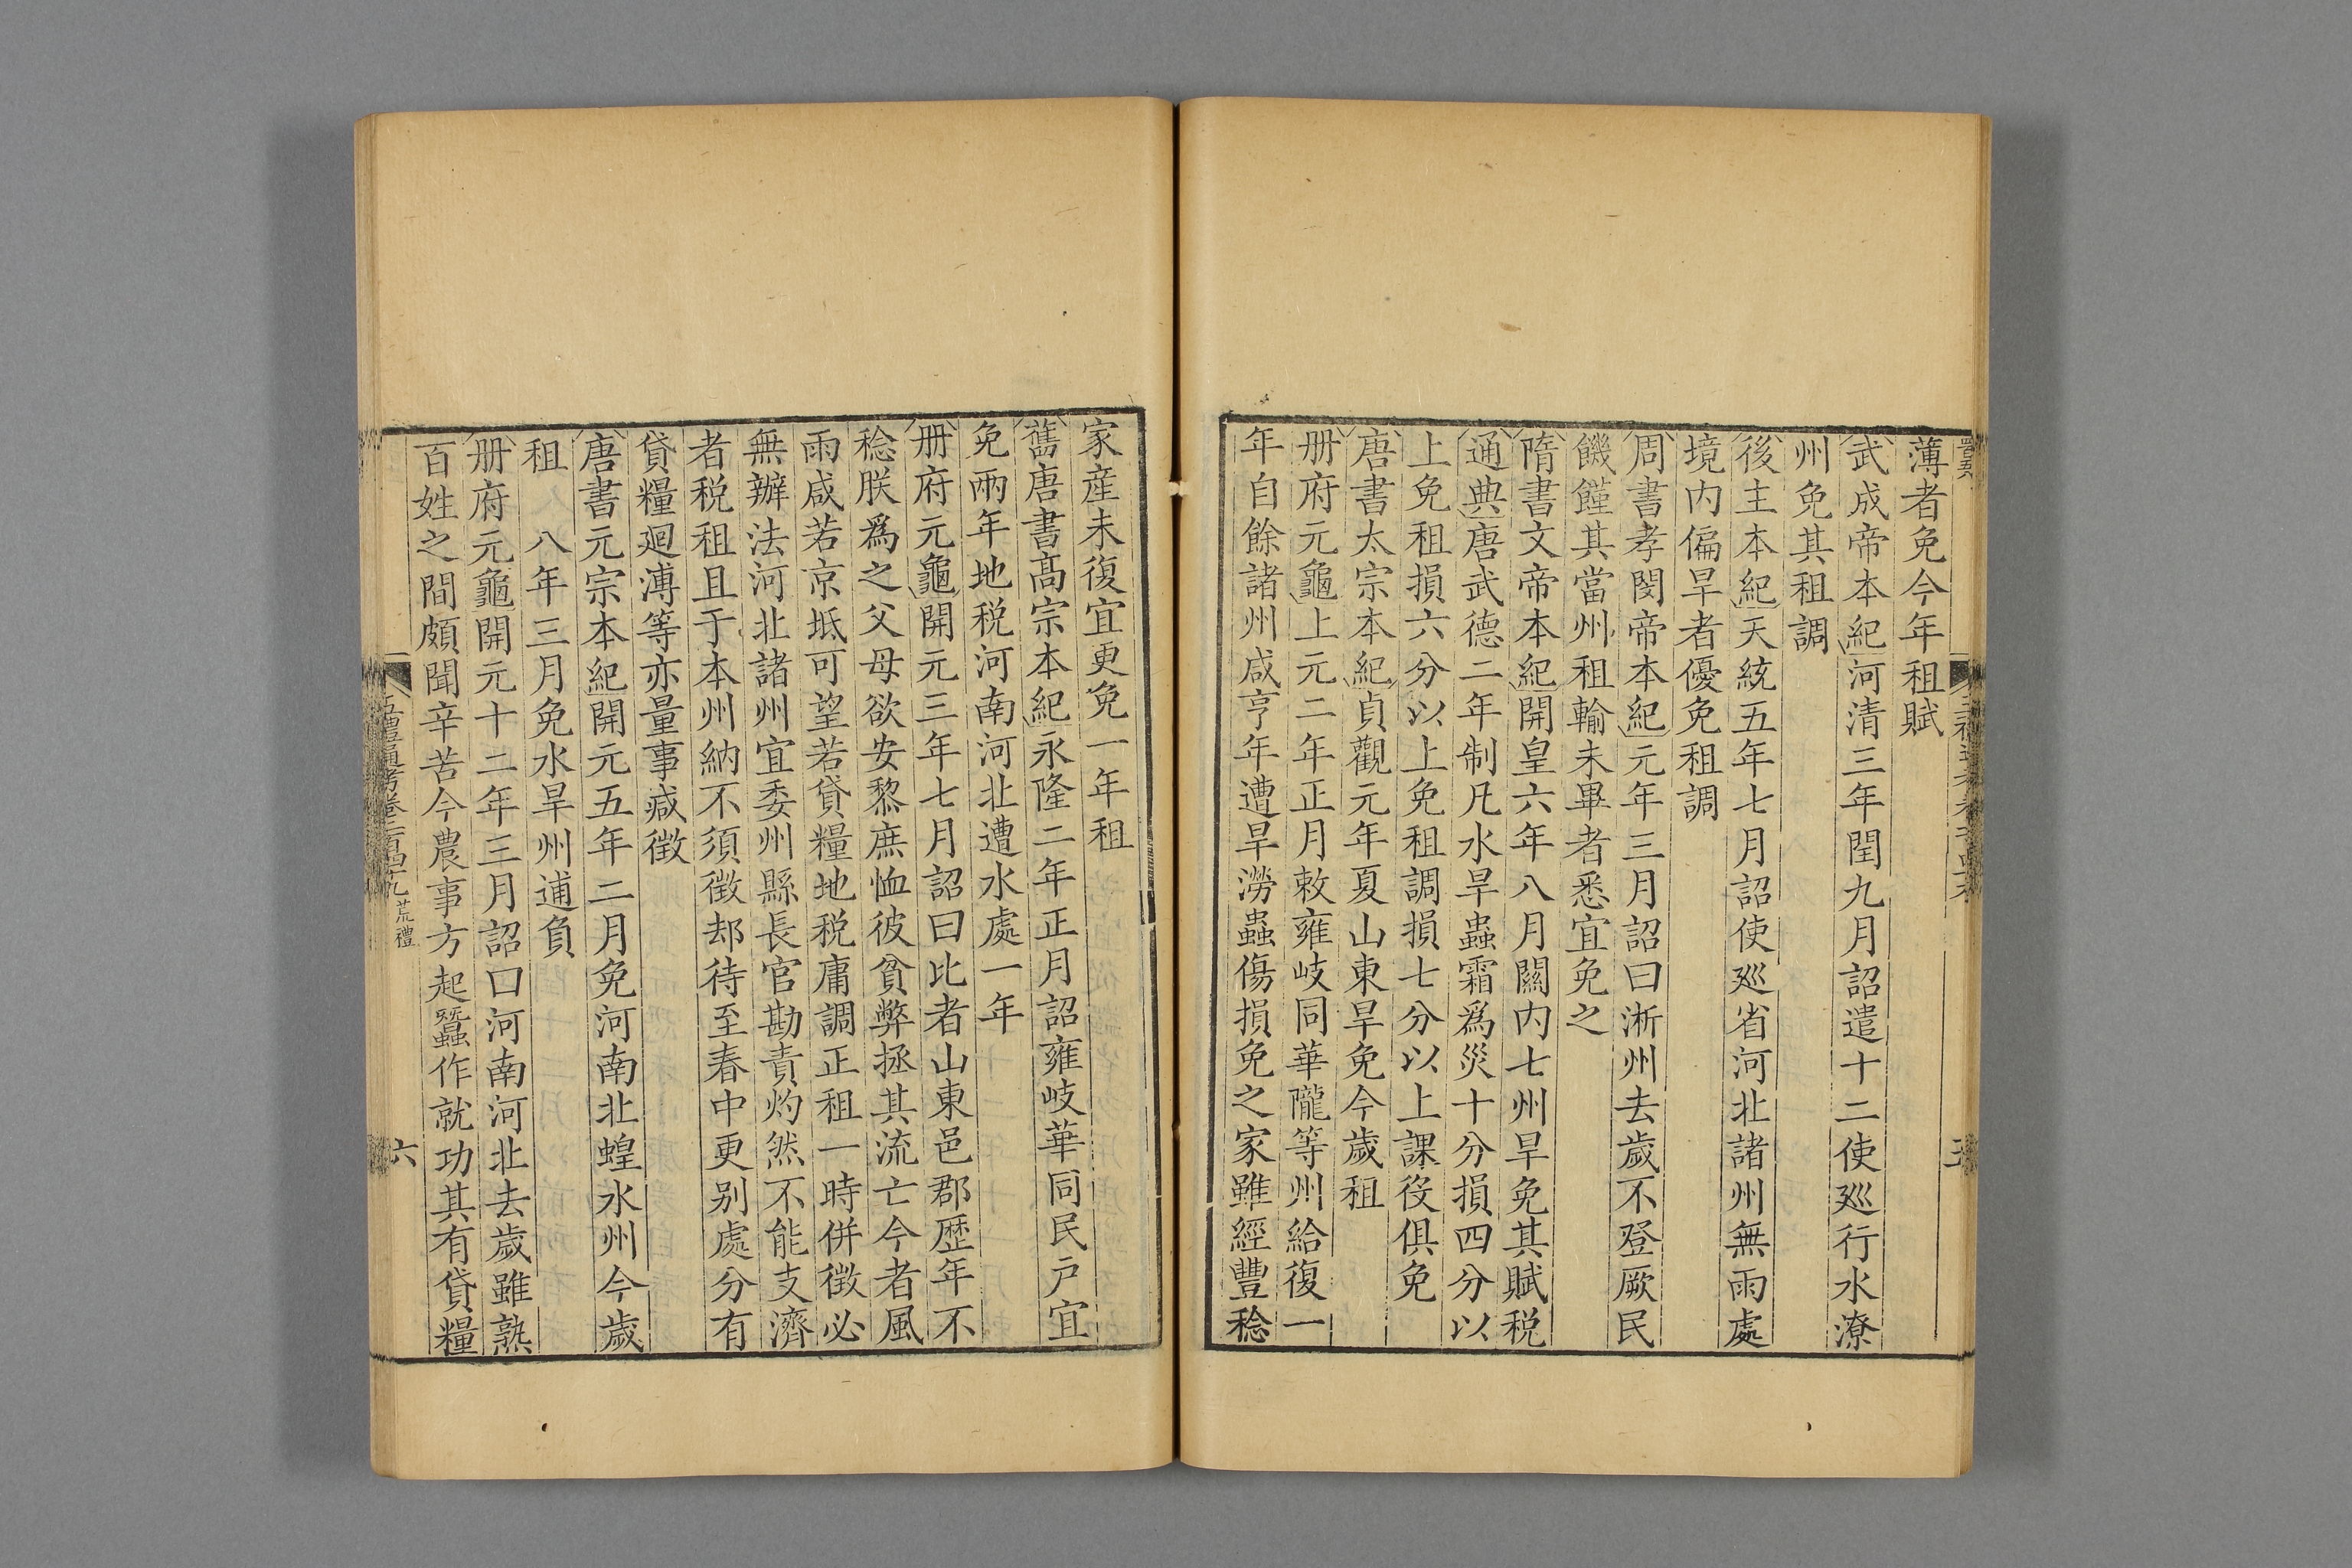 薄者免今年租賦
武成帝本紀河清三年閏九月詔遣十二使廵行水潦
州免其租調
後主本紀天統五年七月詔使廵省河北諸州無雨處
境内偏旱者優免租調
周書孝閔帝本紀元年三月詔曰淅州去歲不登厥民
饑饉其當州租輸未畢者悉宜免之
隋書文帝本紀開皇六年八月關内七州旱免其賦税
通典唐武德二年制凡水旱蟲霜爲災十分損四分以
上免租損六分以上免租調損七分以上課役俱免
唐書太宗本紀貞觀元年夏山東旱免今歲租
册府元龜上元二年正月敕雍岐同華隴等州給復一
年自餘諸州咸亨年遭旱澇蟲傷損免之家雖經豐稔
家産未復宜更免一年租
舊唐書高宗本紀永隆二年正月詔雍岐華同民户宜
免兩年地税河南河北遭水處一年
册府元龜開元三年七月詔曰比者山東邑郡歴年不
稔朕爲之父母欲安黎庶恤彼貧弊拯其流亡今者風
雨咸若京坻可望若貸糧地税庸調正租一時併徴必
無辦法河北諸州宜委州縣長官勘責灼然不能支濟
者税租且于本州納不須徴却待至春中更别處分有
貸糧廻溥等亦量事減徴
唐書元宗本紀開元五年二月免河南北蝗水州今歲
租　八年三月免水旱州逋負
册府元龜開元十二年三月詔曰河南河北去歲雖熟
百姓之間頗聞辛苦今農事方起蠶作就功其有貸糧
五禮通考卷二百四十九 荒禮
六